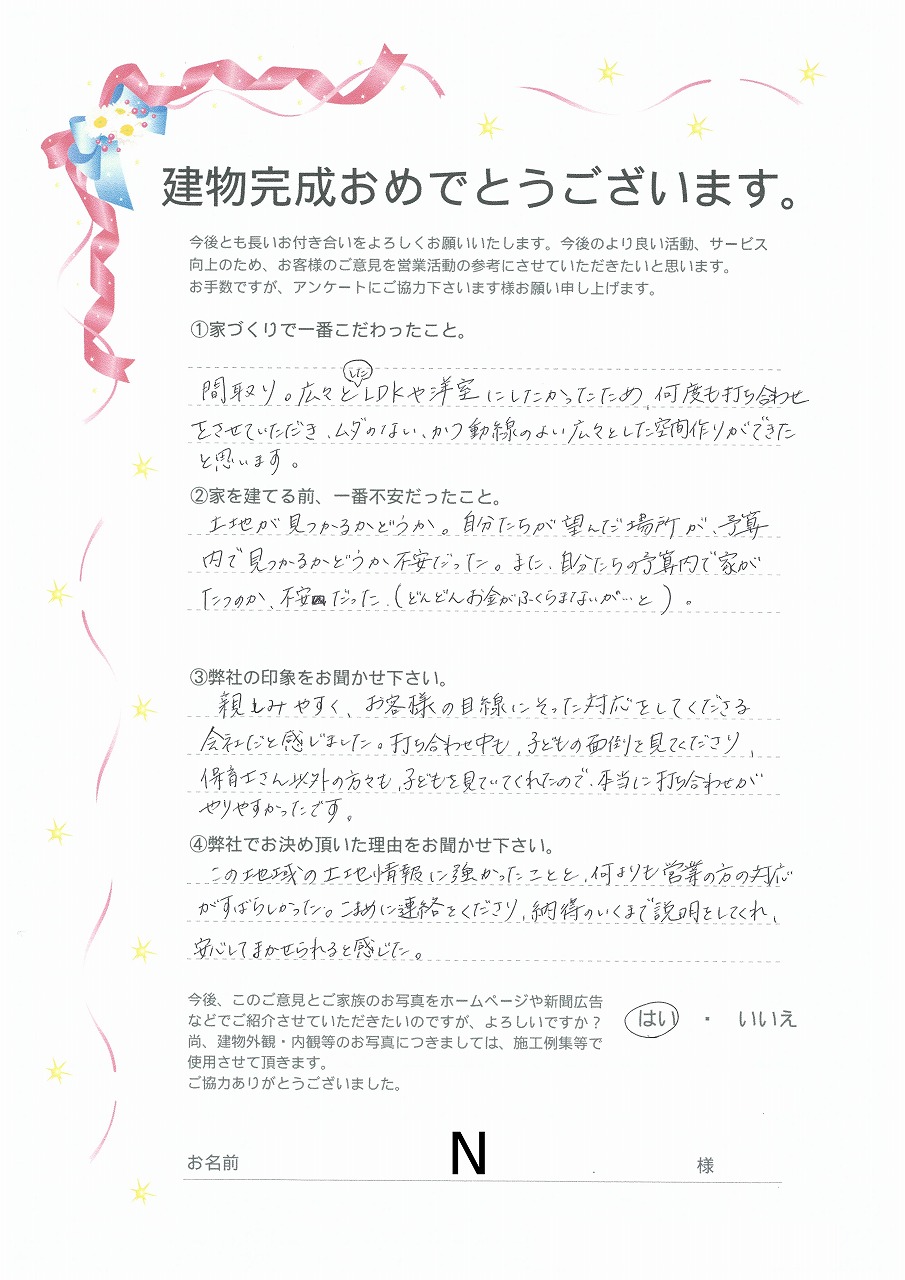 建物完成おめでとうございます。
今後とも長いお付き合いをよろしくお願いいたします。今後のより良い活動、サービス
向上のため、お客様のご意見を営業活動の参考にさせていただきたいと思います。
お手数ですが、アンケートにご協力下さいます様お願い申し上げます。
①家づくりで一番こだわったこと。
間取り。広々としたLDKや洋室にしたかったため、何度も打ち合わせ
をさせていただき、ムダのない、かつ動線のよい広々とした空間作りができた
と思います。
②家を建てる前、一番不安だったこと。
土地が見つかるかどうか。自分たちが望んだ場所が、予算
内で見つかるかどうか不安だった。また、自分たちの予算内で家が
たつのか、不安だった、(どんどんお金がふくらまないが…と)。
③弊社の印象をお聞かせ下さい。
親しみやすく、お客様の目線にそった対応をしてくださる
会社だと感じました。打ち合わせ中も、子どもの面倒を見てくださり、
保育士さん以外の方々も、子どもを見ていてくれたので、本当に打ち合わせが
やりやすかったです。
④弊社でお決め頂いた理由をお聞かせ下さい。
この地域の土地情報に強かったことと、何よりも営業の方の対応
がすばらしかった。こまめに連絡をくださり、納得のいくまで説明をしてくれ、
安心してまかせられると感じた。
今後、このご意見とご家族のお写真をホームページや新聞広告
などでご紹介させていただきたいのですが、よろしいですか？ はい ・ いいえ
尚、建物外観・内観等のお写真につきましては、施工例集等で
使用させて頂きます。
ご協力ありがとうございました。
お名前 N 様